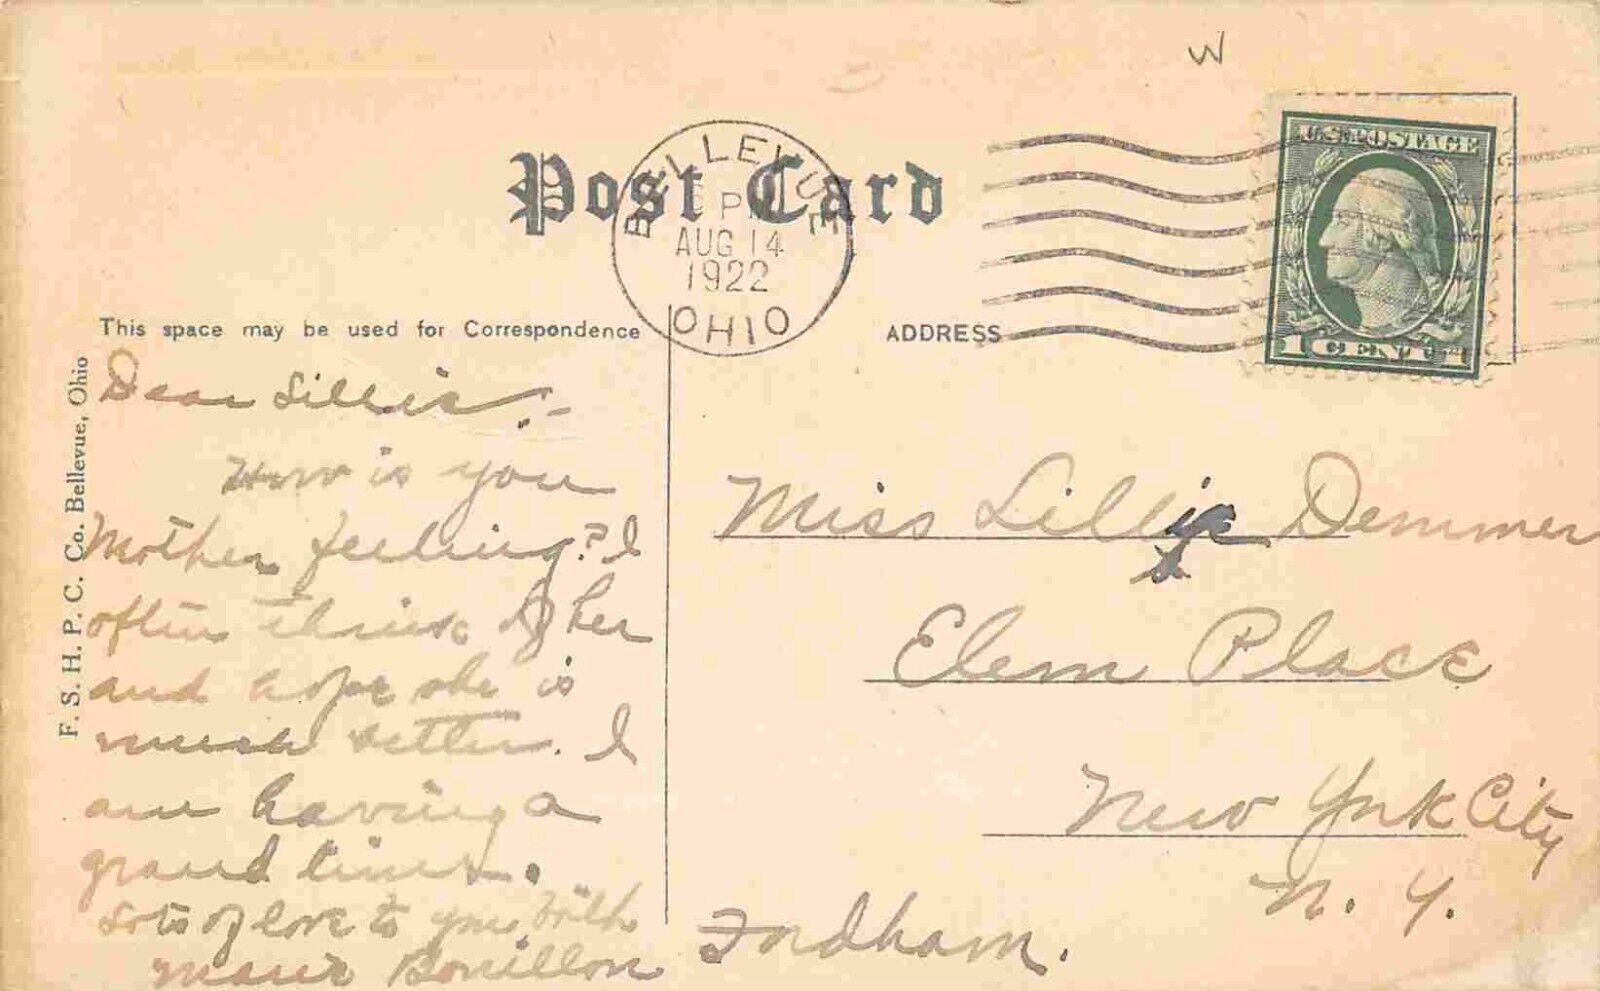 W
Post Card
BELLEVUE
PM
AUG 14
1922
OHIO
U.S. POSTAGE
1 CENT 1
This space may be used for Correspondence
ADDRESS
F. S. H. P. C. Co. Bellevue, Ohio
Dear Lillis,-
How is you
Mother feeling? I
often think of her
and hope she is
much better. I
am having a
grand time.
Lots of love to you both
Marie Bouillon
Miss Demmer
Elem Place
New York City
N. Y.
Fordham.